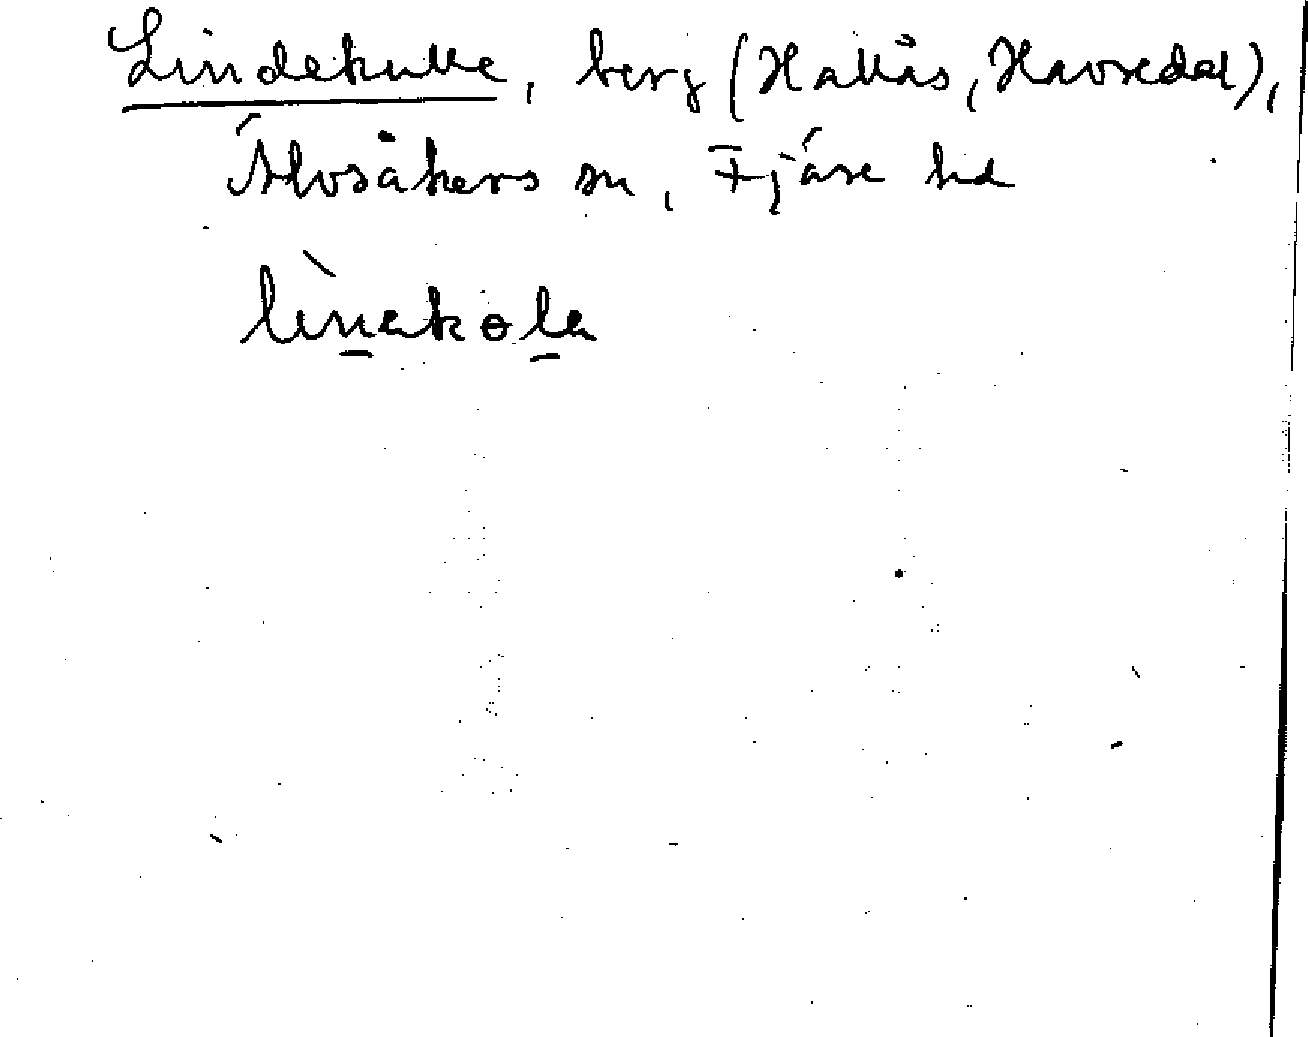 Lindekulle, berg (Hallås, Havredal),
Älvsåkers sn, Fjäre hd
lìnekɵle